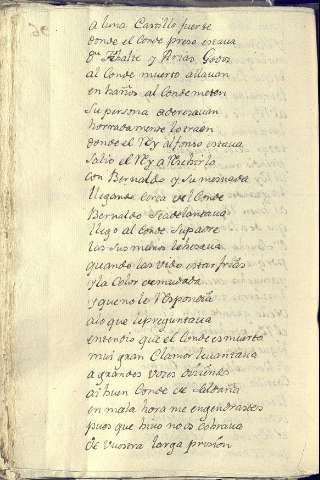 a luna Castillo fuerte
donde el Conde preso estaua
Dn Tibalte y Arias Godos
al Conde muerto allauan
en baños al Conde meten
su persona aderesauan
honrradamente lo traen
donde el Rey alfonso estaua
salio el Rey a Resibirlo
con Bernaldo y su mesnada
llegando cerca del Conde
Bernaldo se adelantaua
llego al conde su padre
las sus manos le besaua
quando las vido estar frias
y la color demudada
y que no le Respondia
a lo que le preguntaua
entendio que el Conde es muerto
mui gran Clamor leuantaua
a grandes vozes disiendo
ai buen Conde de Saldaña
en mala hora me engendrastes
pues que hiuo no os cobraua
de vuestra larga prision